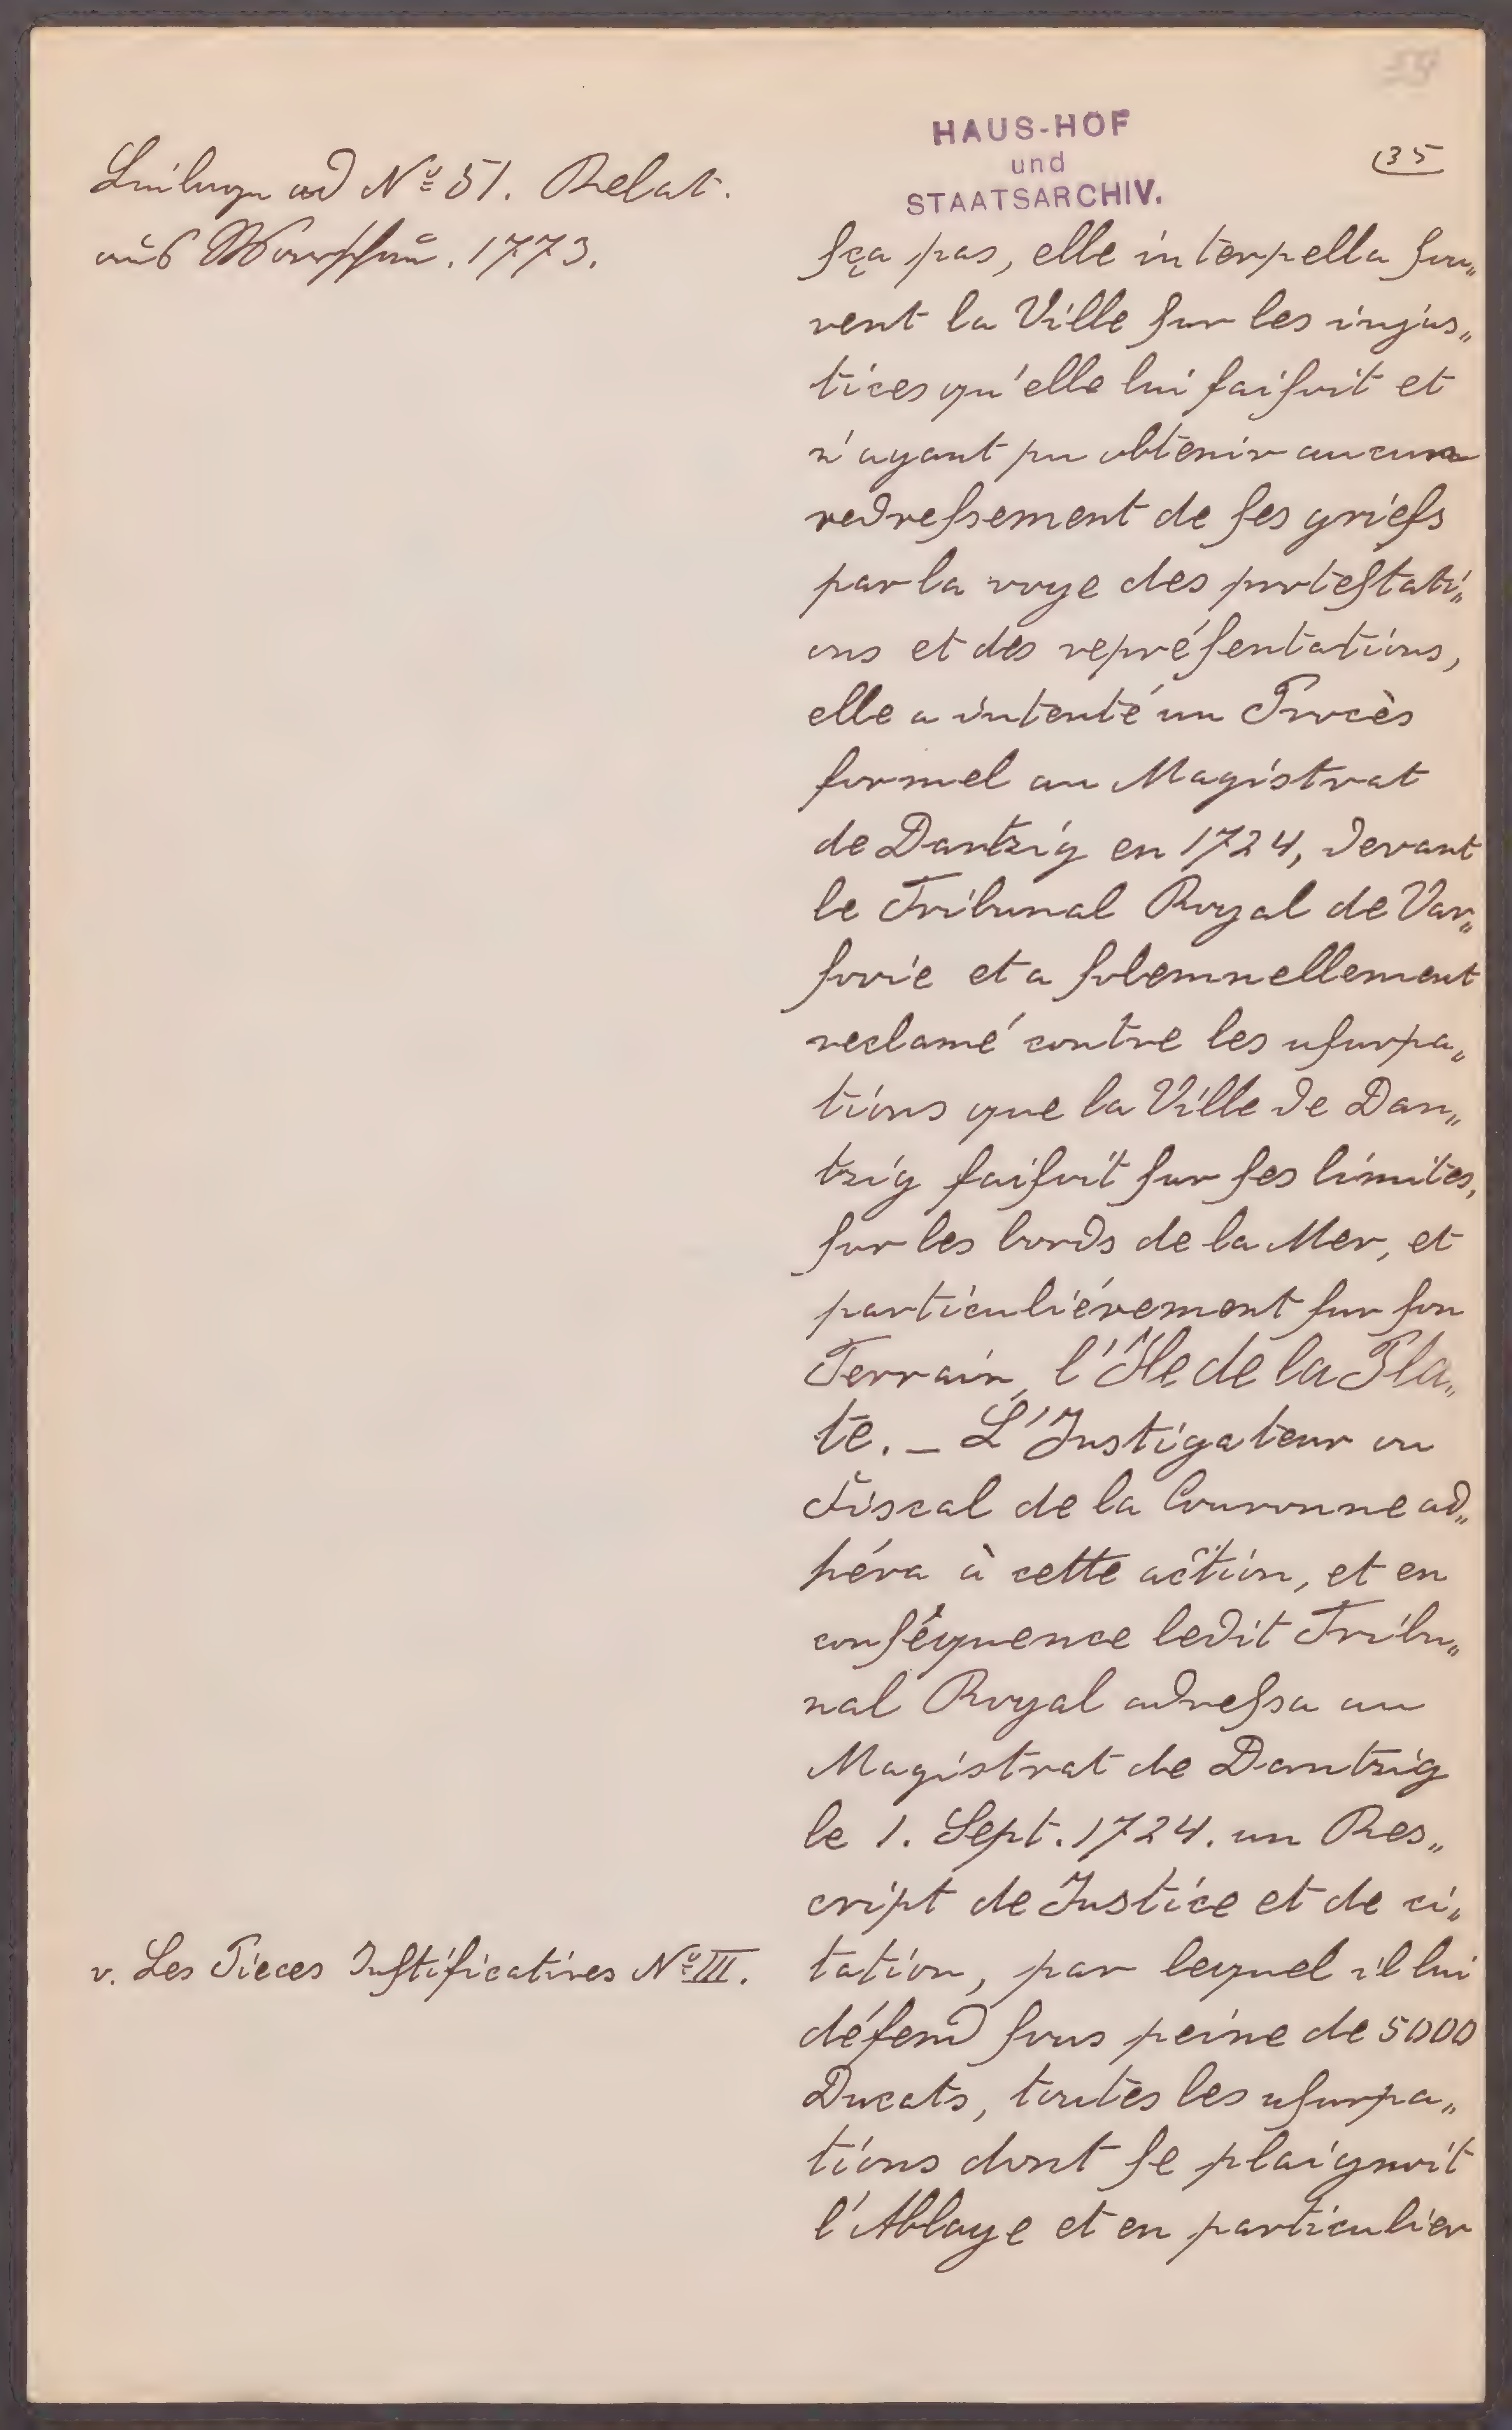 HAUS-HOF
und
STAATSARCHIV.
35
Beilage ad Nº 51. Relat.
aus Warschau. 1773.
sça pas, elle interpella sou„
vent la Ville sur les injus„
tices qu'elle lui faisoit et
n'ayant pu obtenir aucun
redressement de ses griefs
par la voye des protestati„
ons et des représentations,
elle a intenté un Procès
formel au Magistrat
de Dantzig en 1724, devant
le Tribunal Royal de Var„
sovie et a solemnellement
reclamé contre les usurpa„
tions que la Ville de Dan„
tzig faisoit sur ses limites,
sur les bords de la Mer, et
particuliérement sur son
Terrain, l'Île de la Pla„
te. _ L'Instigateur ou
Fiscal de la Couronne ad„
héra à cette action, et en
conséquence ledit Tribu„
nal Royal adressa au
Magistrat de Dantzig
le 1. Sept. 1724. un Res„
cript de Justice et de ci„
v. Les Pieces Justificatives Nº III.
tation, par lequel il lui
défend sous peine de 5000
Ducats, toutes les usurpa„
tions dont se plaignoit
l'Abbaye et en particulier